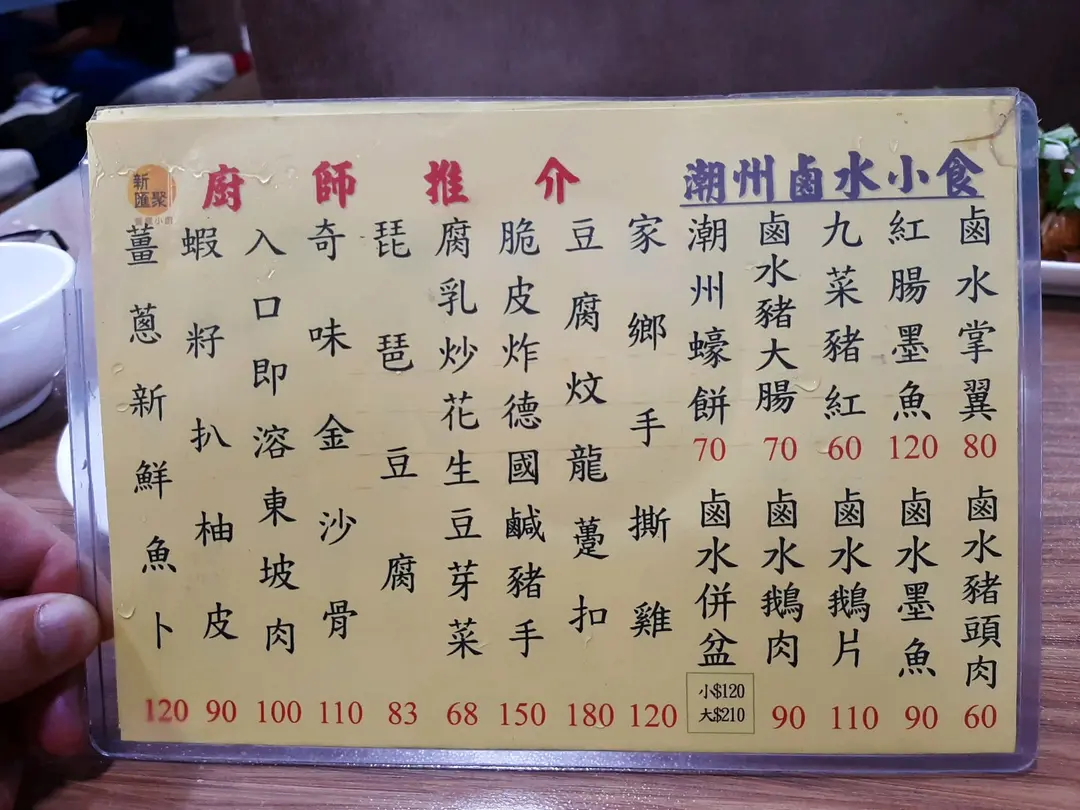 新
匯聚
廚師推介
薑蔥新鮮魚卜
120
蝦籽扒柚皮
90
入口即溶東坡肉
100
奇味金沙骨
110
琵琶豆腐
83
腐乳炒花生豆芽菜
68
脆皮炸德國鹹豬手
150
豆腐炆龍躉扣
180
家鄉手撕雞
120
潮州鹵水小食
潮州蠔餅
70
鹵水豬大腸
70
九菜豬紅
60
紅腸墨魚
120
鹵水掌翼
80
鹵水併盆
小$120
大$210
鹵水鵝肉
90
鹵水鵝片
110
鹵水墨魚
90
鹵水豬頭肉
60